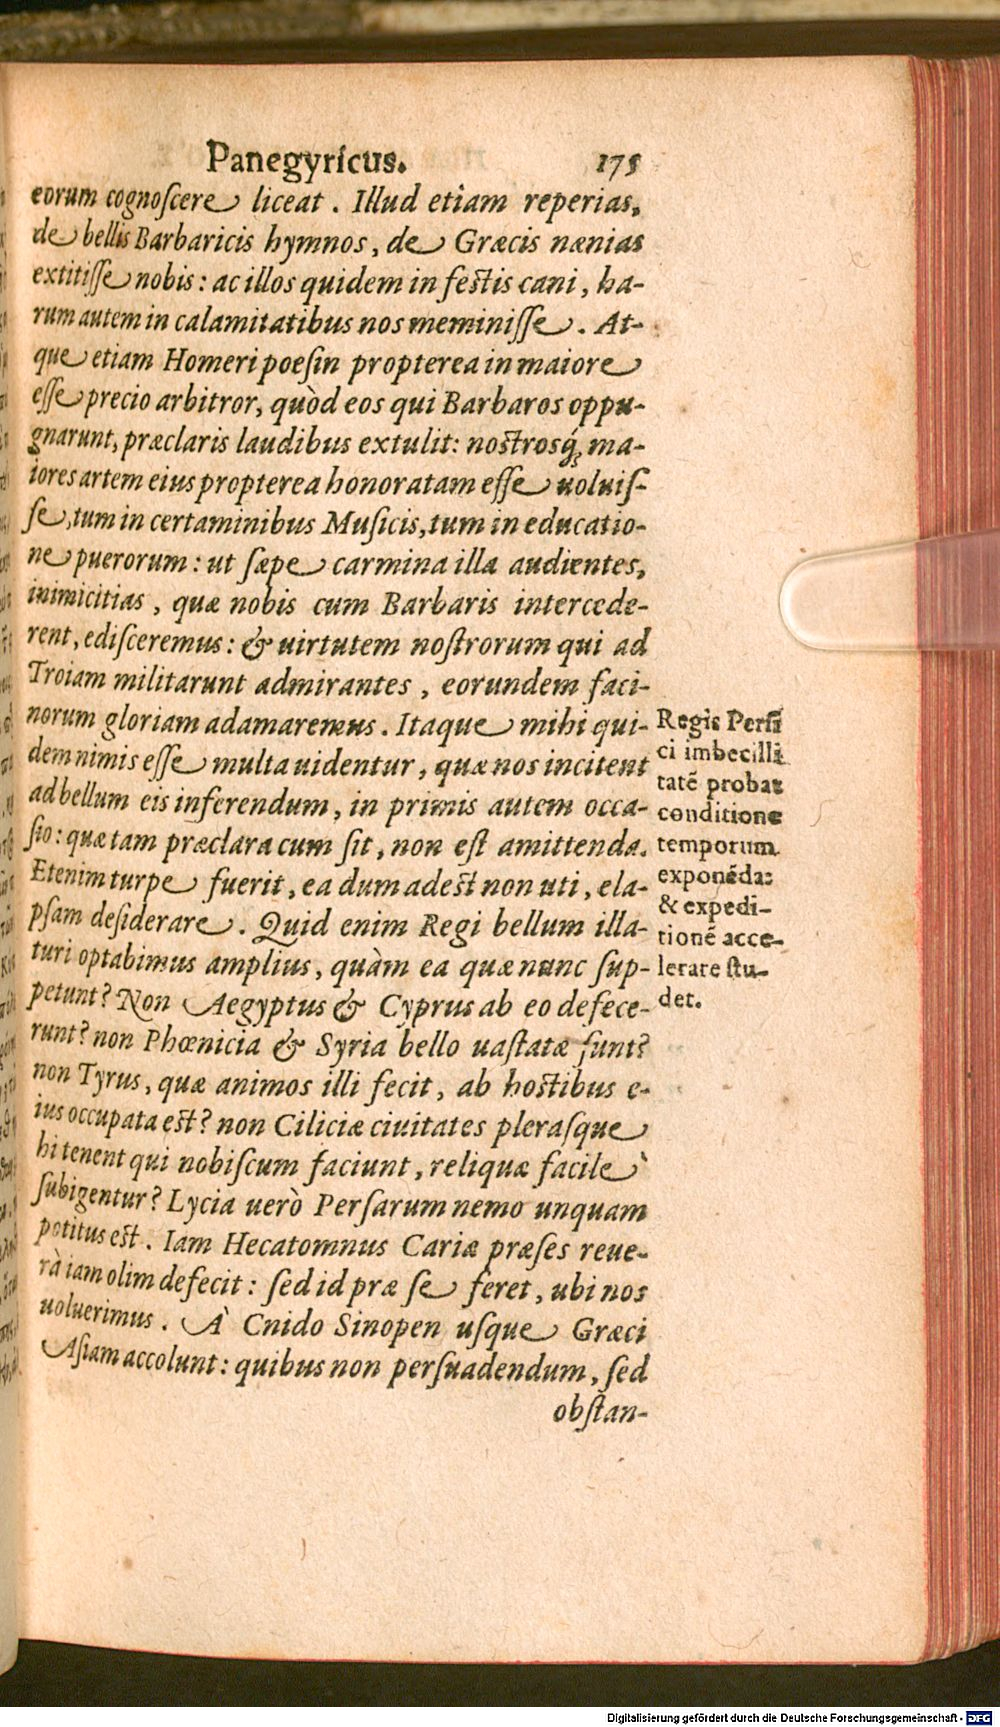 Panegyricus. 175
eorum cognoſcere liceat. Illud etiam reperias,
de bellis Barbaricis hymnos, de Græcis nænias
extitiſſe nobis: ac illos quidem in feſtis cani, ha-
rum autem in calamitatibus nos meminiſſe. At-
que etiam Homeri poeſin propterea in maiore
eſſe precio arbitror, quòd eos qui Barbaros oppu-
gnarunt, præclaris laudibus extulit: noſtrosq́; ma-
iores artem eius propterea honoratam eſſe uoluiſ-
ſe, tum in certaminibus Muſicis, tum in educatio-
ne puerorum: ut ſæpe carmina illa audientes,
inimicitias, quæ nobis cum Barbaris intercede-
rent, ediſceremus: & uirtutem noſtrorum qui ad
Troiam militarunt admirantes, eorundem faci-
norum gloriam adamaremus. Itaque mihi qui-
dem nimis eſſe multa uidentur, quæ nos incitent
ad bellum eis inferendum, in primis autem occa-
ſio: quæ tam præclara cum ſit, non eſt amittenda.
Etenim turpe fuerit, ea dum adeſt non uti, ela-
pſam deſiderare. Quid enim Regi bellum illa-
turi optabimus amplius, quàm ea quæ nunc ſup-
petunt? Non Aegyptus & Cyprus ab eo defece-
runt? non Phœnicia & Syria bello uaſtatæ ſunt?
non Tyrus, quæ animos illi fecit, ab hoſtibus e-
ius occupata eſt? non Ciliciæ ciuitates pleraſque
hi tenent qui nobiſcum faciunt, reliquæ facilè
ſubigentur? Lycia uerò Perſarum nemo unquam
potitus eſt. Iam Hecatomnus Cariæ præſes reue-
rà iam olim defecit: ſed id præ ſe feret, ubi nos
uoluerimus. À Cnido Sinopen uſque Græci
Aſiam accolunt: quibus non perſuadendum, ſed
obſtan-
Regis Perſi
ci imbecilli
tatē probat
conditione
temporum
exponēda:
& expedi-
tionē acce-
lerare ſtu-
det.
Digitalisierung gefördert durch die Deutsche Forschungsgemeinschaft - DFG